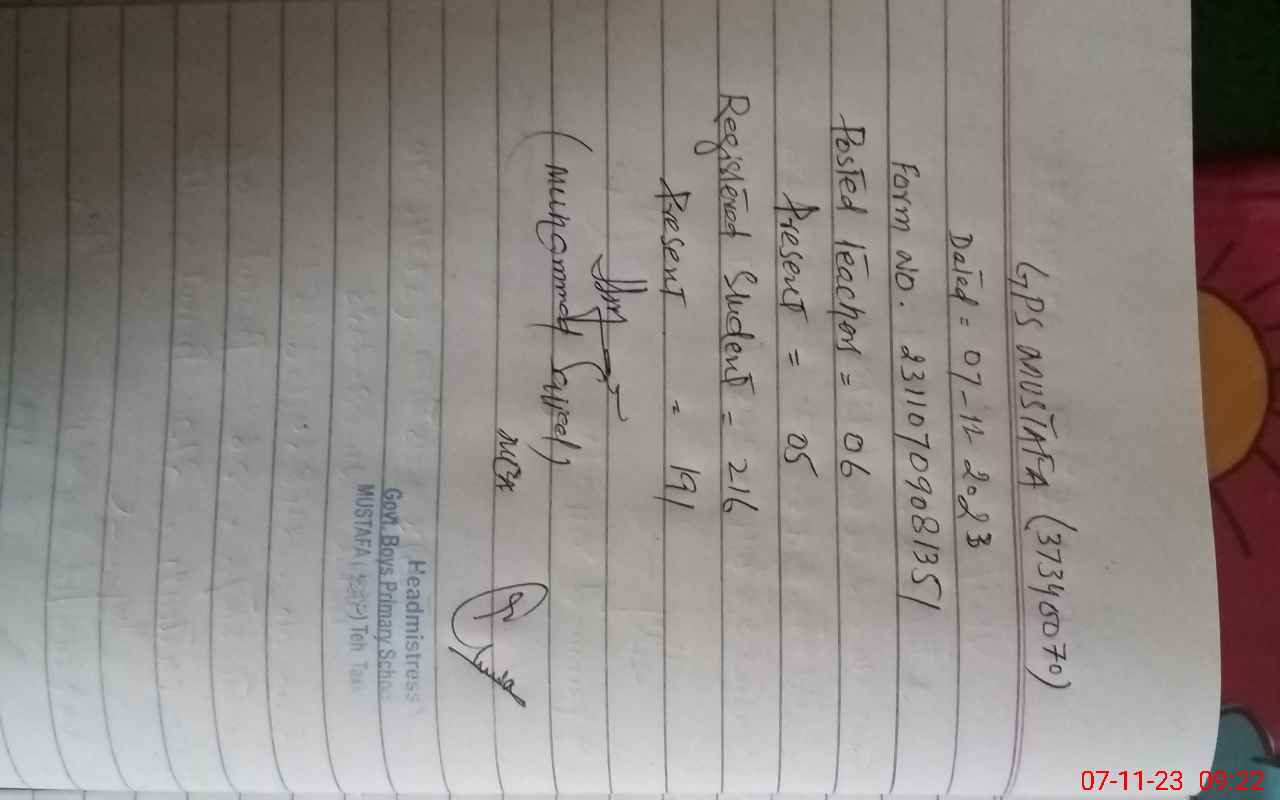 GPS MUSTAFA (37340070)
Dated = 07-11-2023
Form No. 23110709081351
Posted Teachers = 06
Present = 05
Registered Student = 216
Present = 191
(Muhammad Sajjad)
Headmistress
Govt. Boys Primary School
MUSTAFA Teh
07-11-23 09:22